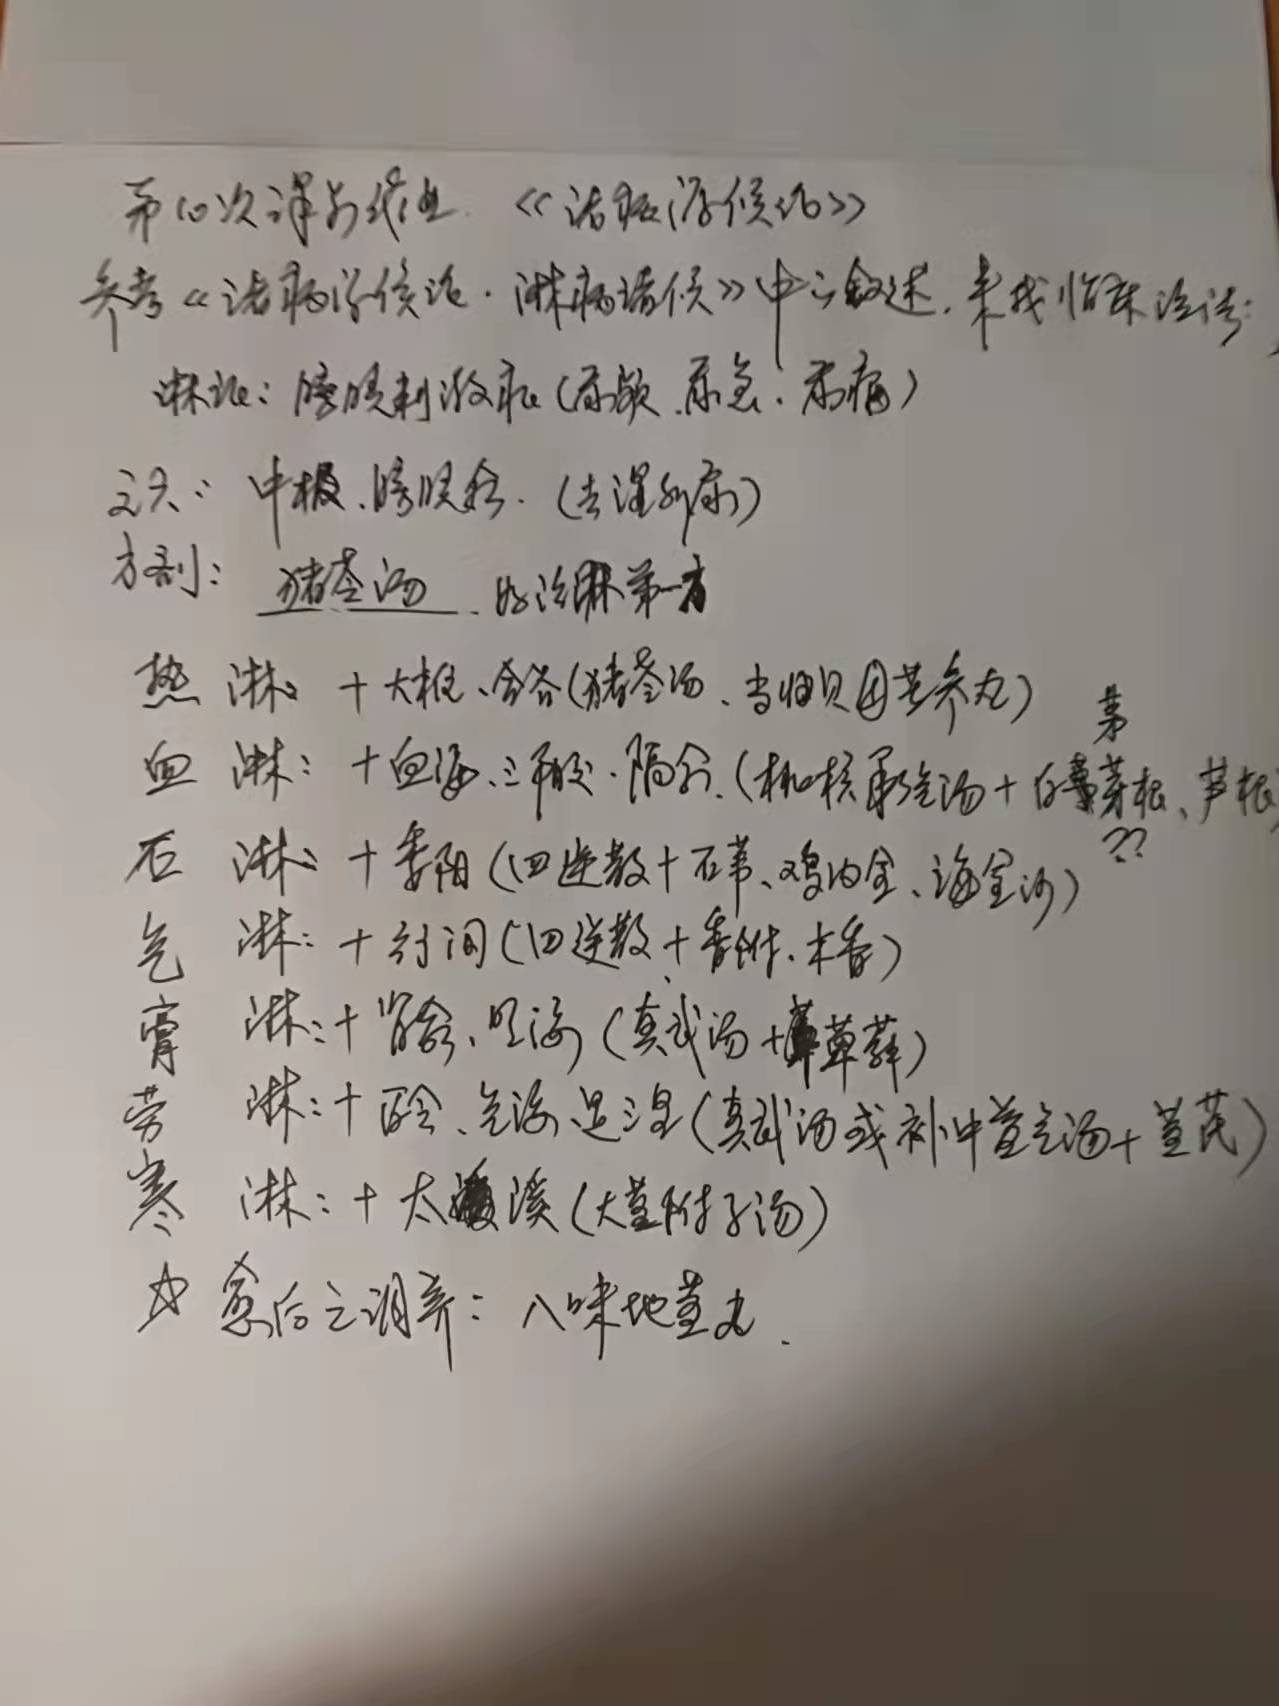 第10次课前作业 《诸病源候论》
参考《诸病源候论·淋病诸候》中之叙述,来找临床治法:
淋证:膀胱刺激征(尿频、尿急、尿痛)
主穴:中极、膀胱俞.(去湿利尿)
方剂:猪苓汤 治淋第一方
热 淋:+大椎、合谷(猪苓汤、当归贝母苦参丸)
茅
血 淋:+血海、三阴交、膈俞.(桃核承气汤+白茅根、芦根)
??
石 淋:+委阳(四逆散+石苇、鸡内金、海金沙)
气 淋:+行间(四逆散+香附、木香)
膏 淋:+肾俞、照海(真武汤+草薢)
劳 淋:+百会、气海、足三里(真武汤或补中益气汤+黄芪)
寒 淋:+太溪(大黄附子汤)
☆ 愈后之调养:八味地黄丸.